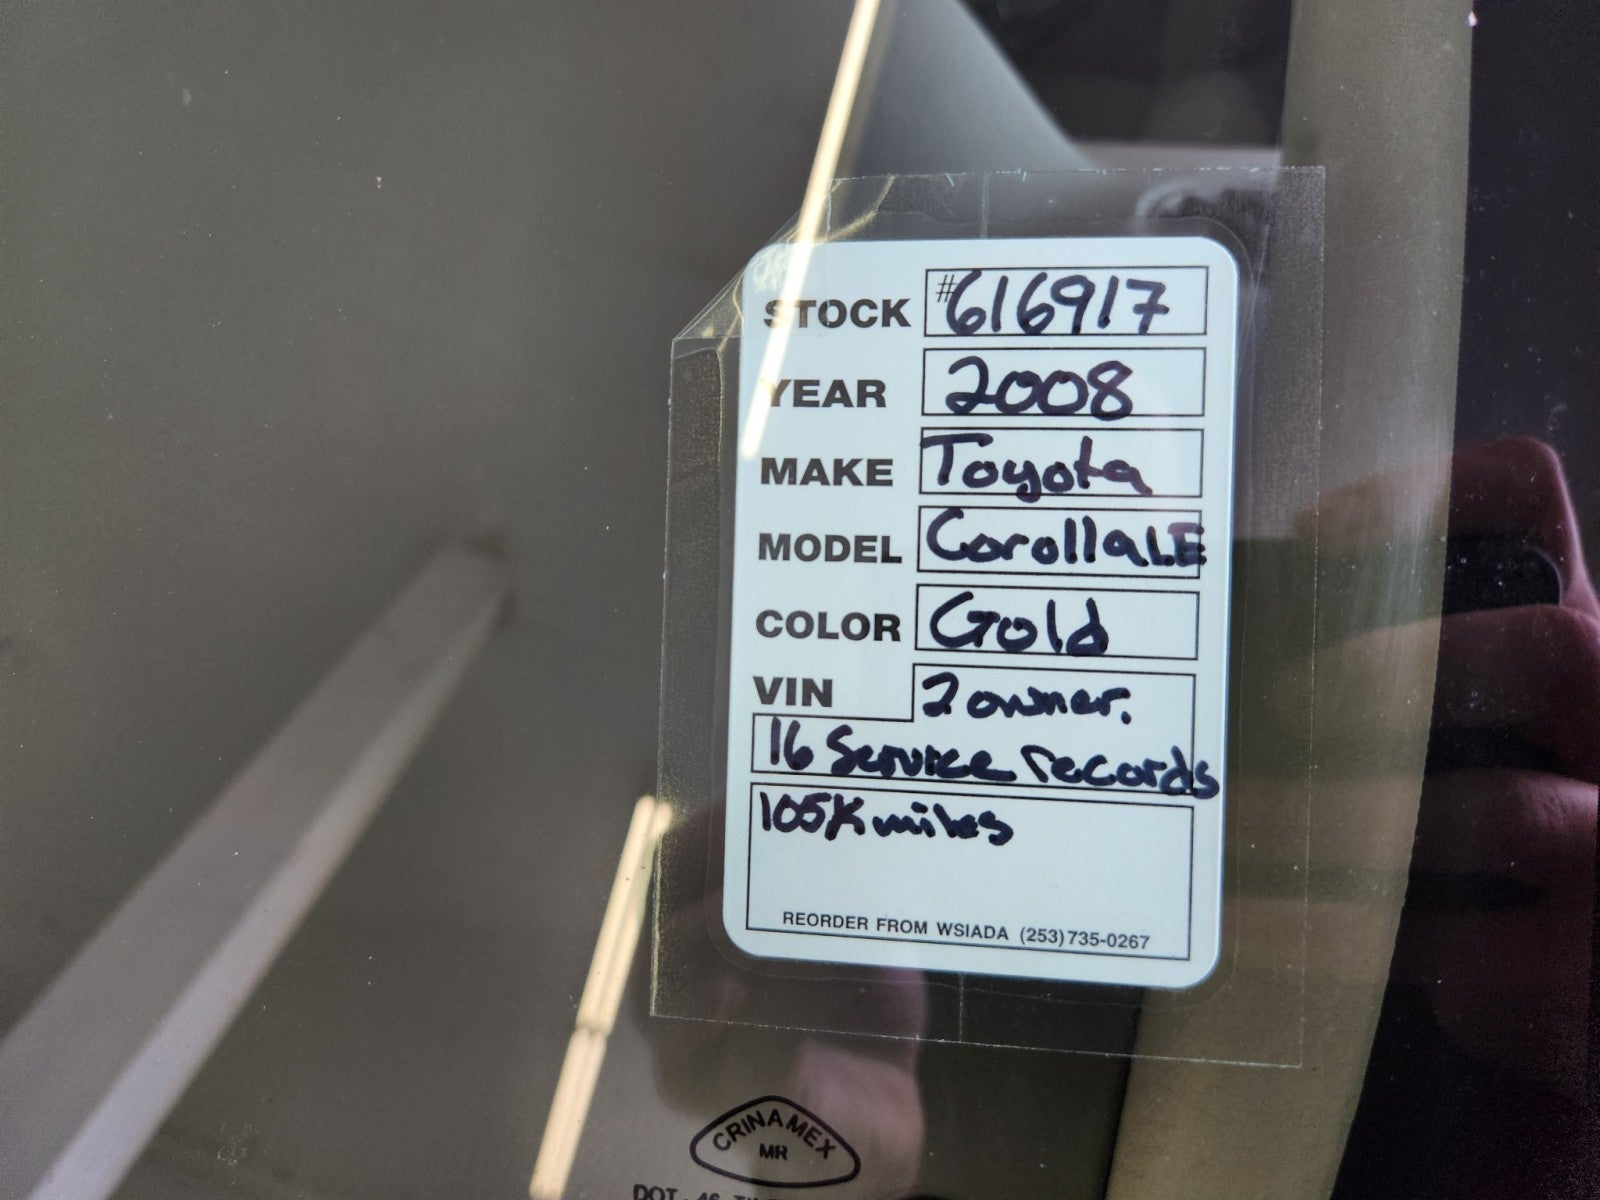 STOCK #616917
YEAR 2008
MAKE Toyota
MODEL Corolla LE
COLOR Gold
VIN 2 owner.
16 Service records
105K miles
REORDER FROM WSIADA (253)735-0267
CRINAMEX
MR
DOT